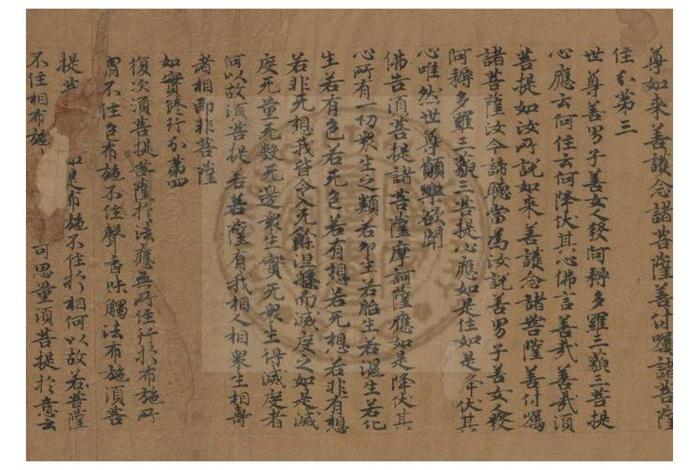 尊如来善護念諸菩薩善付囑諸菩薩
住分第三
世尊善男子善女人發阿耨多羅三藐三菩提
心應云何住云何降伏其心佛言善哉善哉須
菩提如汝所說如来善護念諸菩薩善付囑
諸菩薩汝今諦聽當為汝說善男子善女發
阿耨多羅三藐三菩提心應如是住如是降伏其
心唯然世尊願樂欲聞
佛告須菩提諸菩薩摩訶薩應如是降伏其
心所有一切衆生之類若卵生若胎生若濕生若化
生若有色若无色若有想若无想若非有想
若非无想我皆令入无餘涅槃而滅度之如是滅
度无量无數无邊衆生實无衆生得滅度者
何以故須菩提若菩薩有我相人相衆生相壽
者相即非菩薩
如實修行分第四
復次須菩提菩薩於法應無所住行於布施所
謂不住色布施不住聲香味觸法布施須菩
提如是布施不住於相何以故若菩薩
不住相布施可思量須菩提於意云